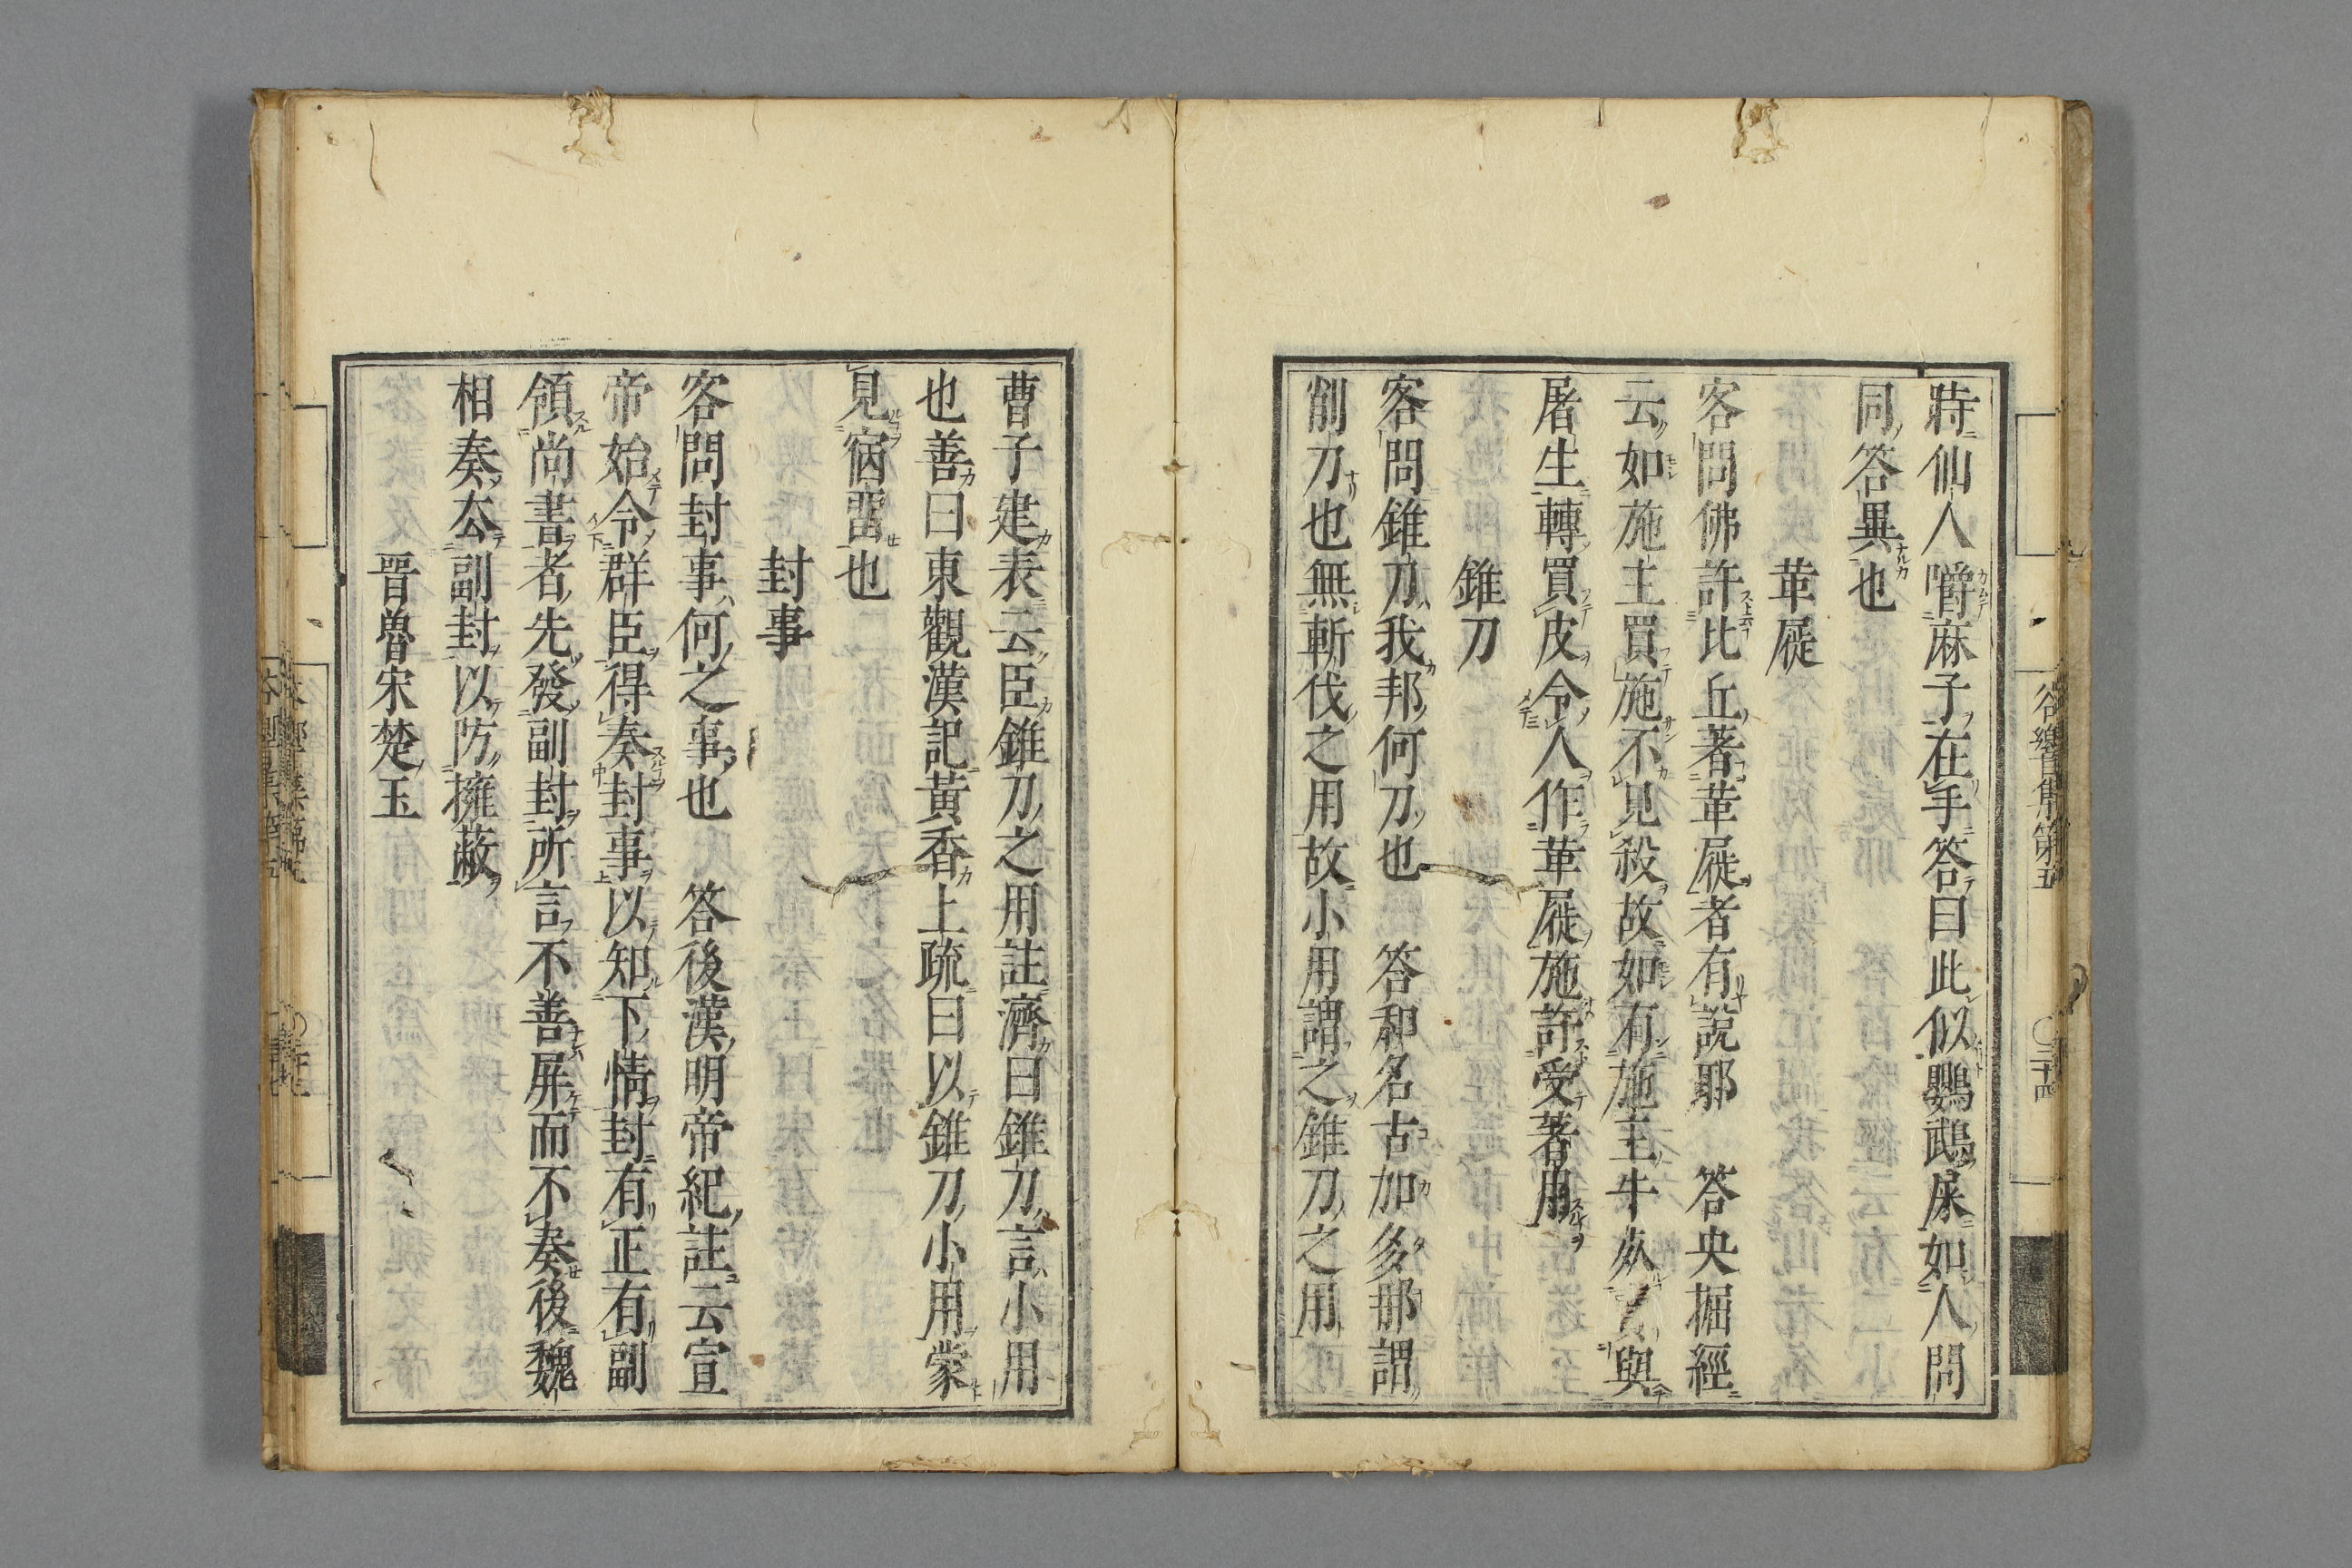 時仙人嚼麻子在手答曰此似鸚鵡屎如人問
同答異也
革屣
客問佛許比丘著革屣者有說耶　答央掘經
云如施主買施不見殺故如有施主牛死與
屠生轉買皮令人作革屣施許受著用
錐刀
客問錐刀我邦何刀也　答和名古加多那謂
削刀也無斬伐之用故小用謂之錐刀之用
谷響集第五
〇三十四
曹子建表云臣錐刀之用註濟曰錐刀言小用
也善曰東觀漢記黃香上疏曰以錐刀小用蒙
見宿畱也
封事
客問封事何之事也　答後漢明帝紀註云宣
帝始令群臣得奏封事以知下情封有正有副
領尚書者先發副封所言不善屏而不奏後魏
相奏去副封以防擁蔽
晋魯宋楚玉